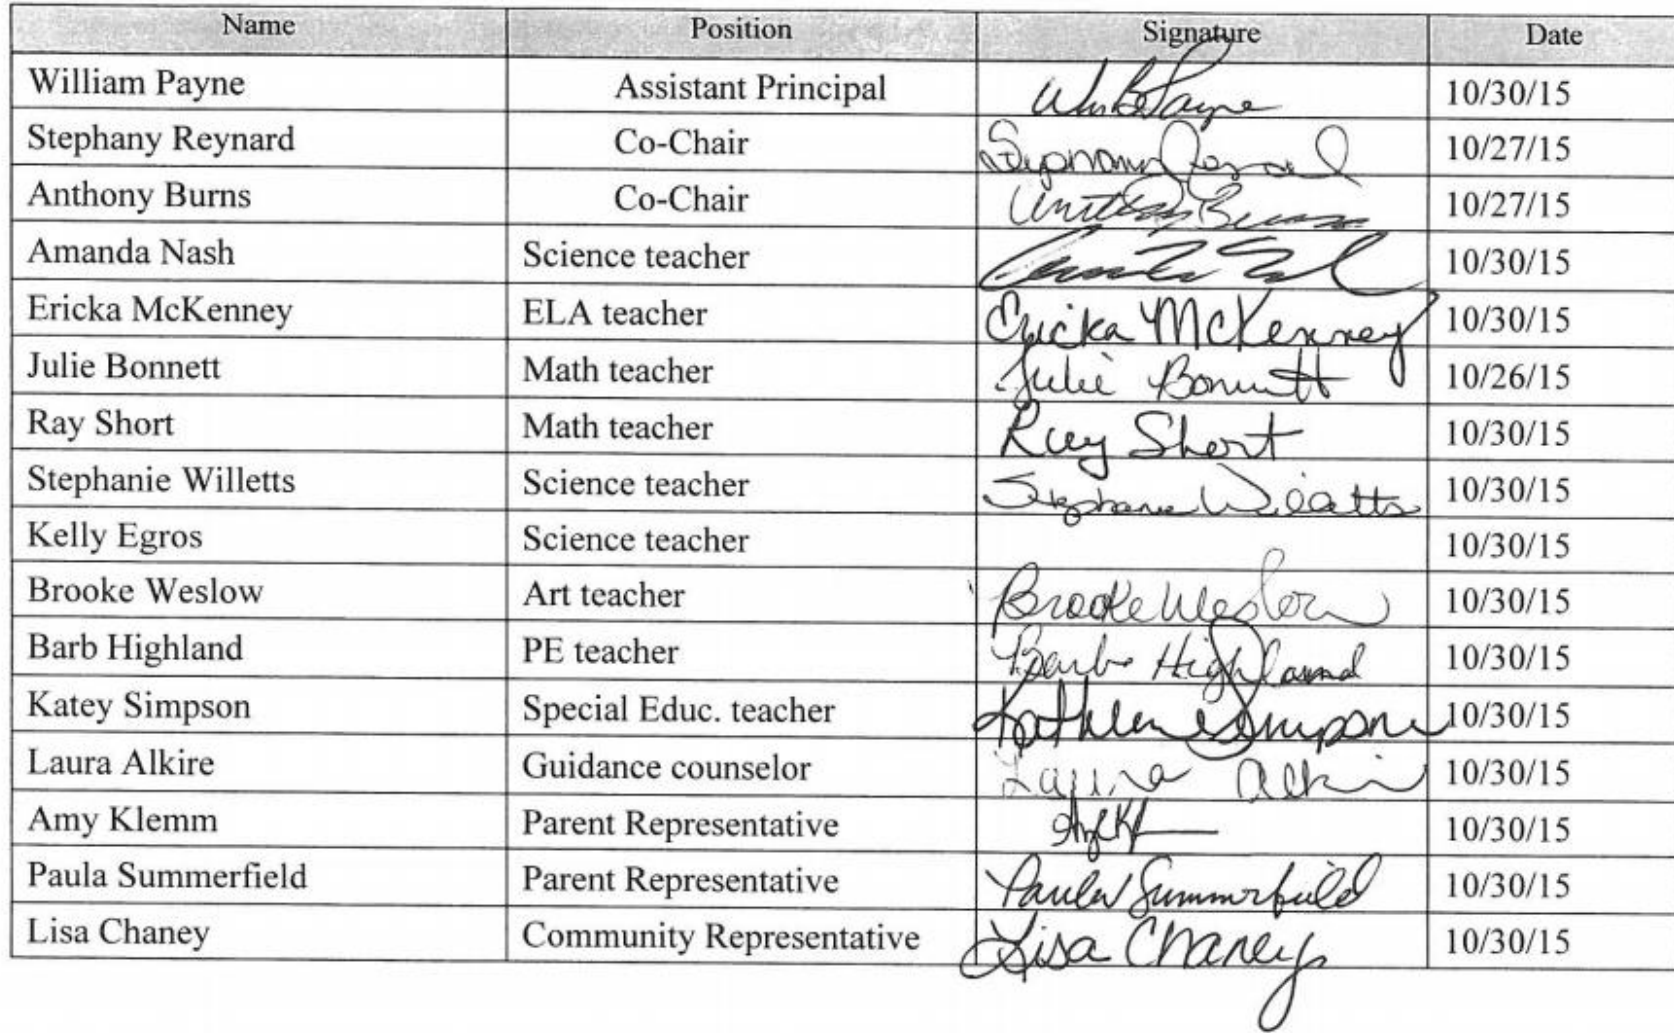 Name Position Signature Date
William Payne Assistant Principal Wm B Payne 10/30/15
Stephany Reynard Co-Chair 10/27/15
Anthony Burns Co-Chair Anthony Burns 10/27/15
Amanda Nash Science teacher 10/30/15
Ericka McKenney ELA teacher Ericka McKenney 10/30/15
Julie Bonnett Math teacher Julie Bonnett 10/26/15
Ray Short Math teacher Ray Short 10/30/15
Stephanie Willetts Science teacher Stephanie Willetts 10/30/15
Kelly Egros Science teacher 10/30/15
Brooke Weslow Art teacher Brooke Weslow 10/30/15
Barb Highland PE teacher Barb Highland 10/30/15
Katey Simpson Special Educ. teacher Kathleen Simpson 10/30/15
Laura Alkire Guidance counselor Laura Alkire 10/30/15
Amy Klemm Parent Representative 10/30/15
Paula Summerfield Parent Representative Paula Summerfield 10/30/15
Lisa Chaney Community Representative Lisa Chaney 10/30/15